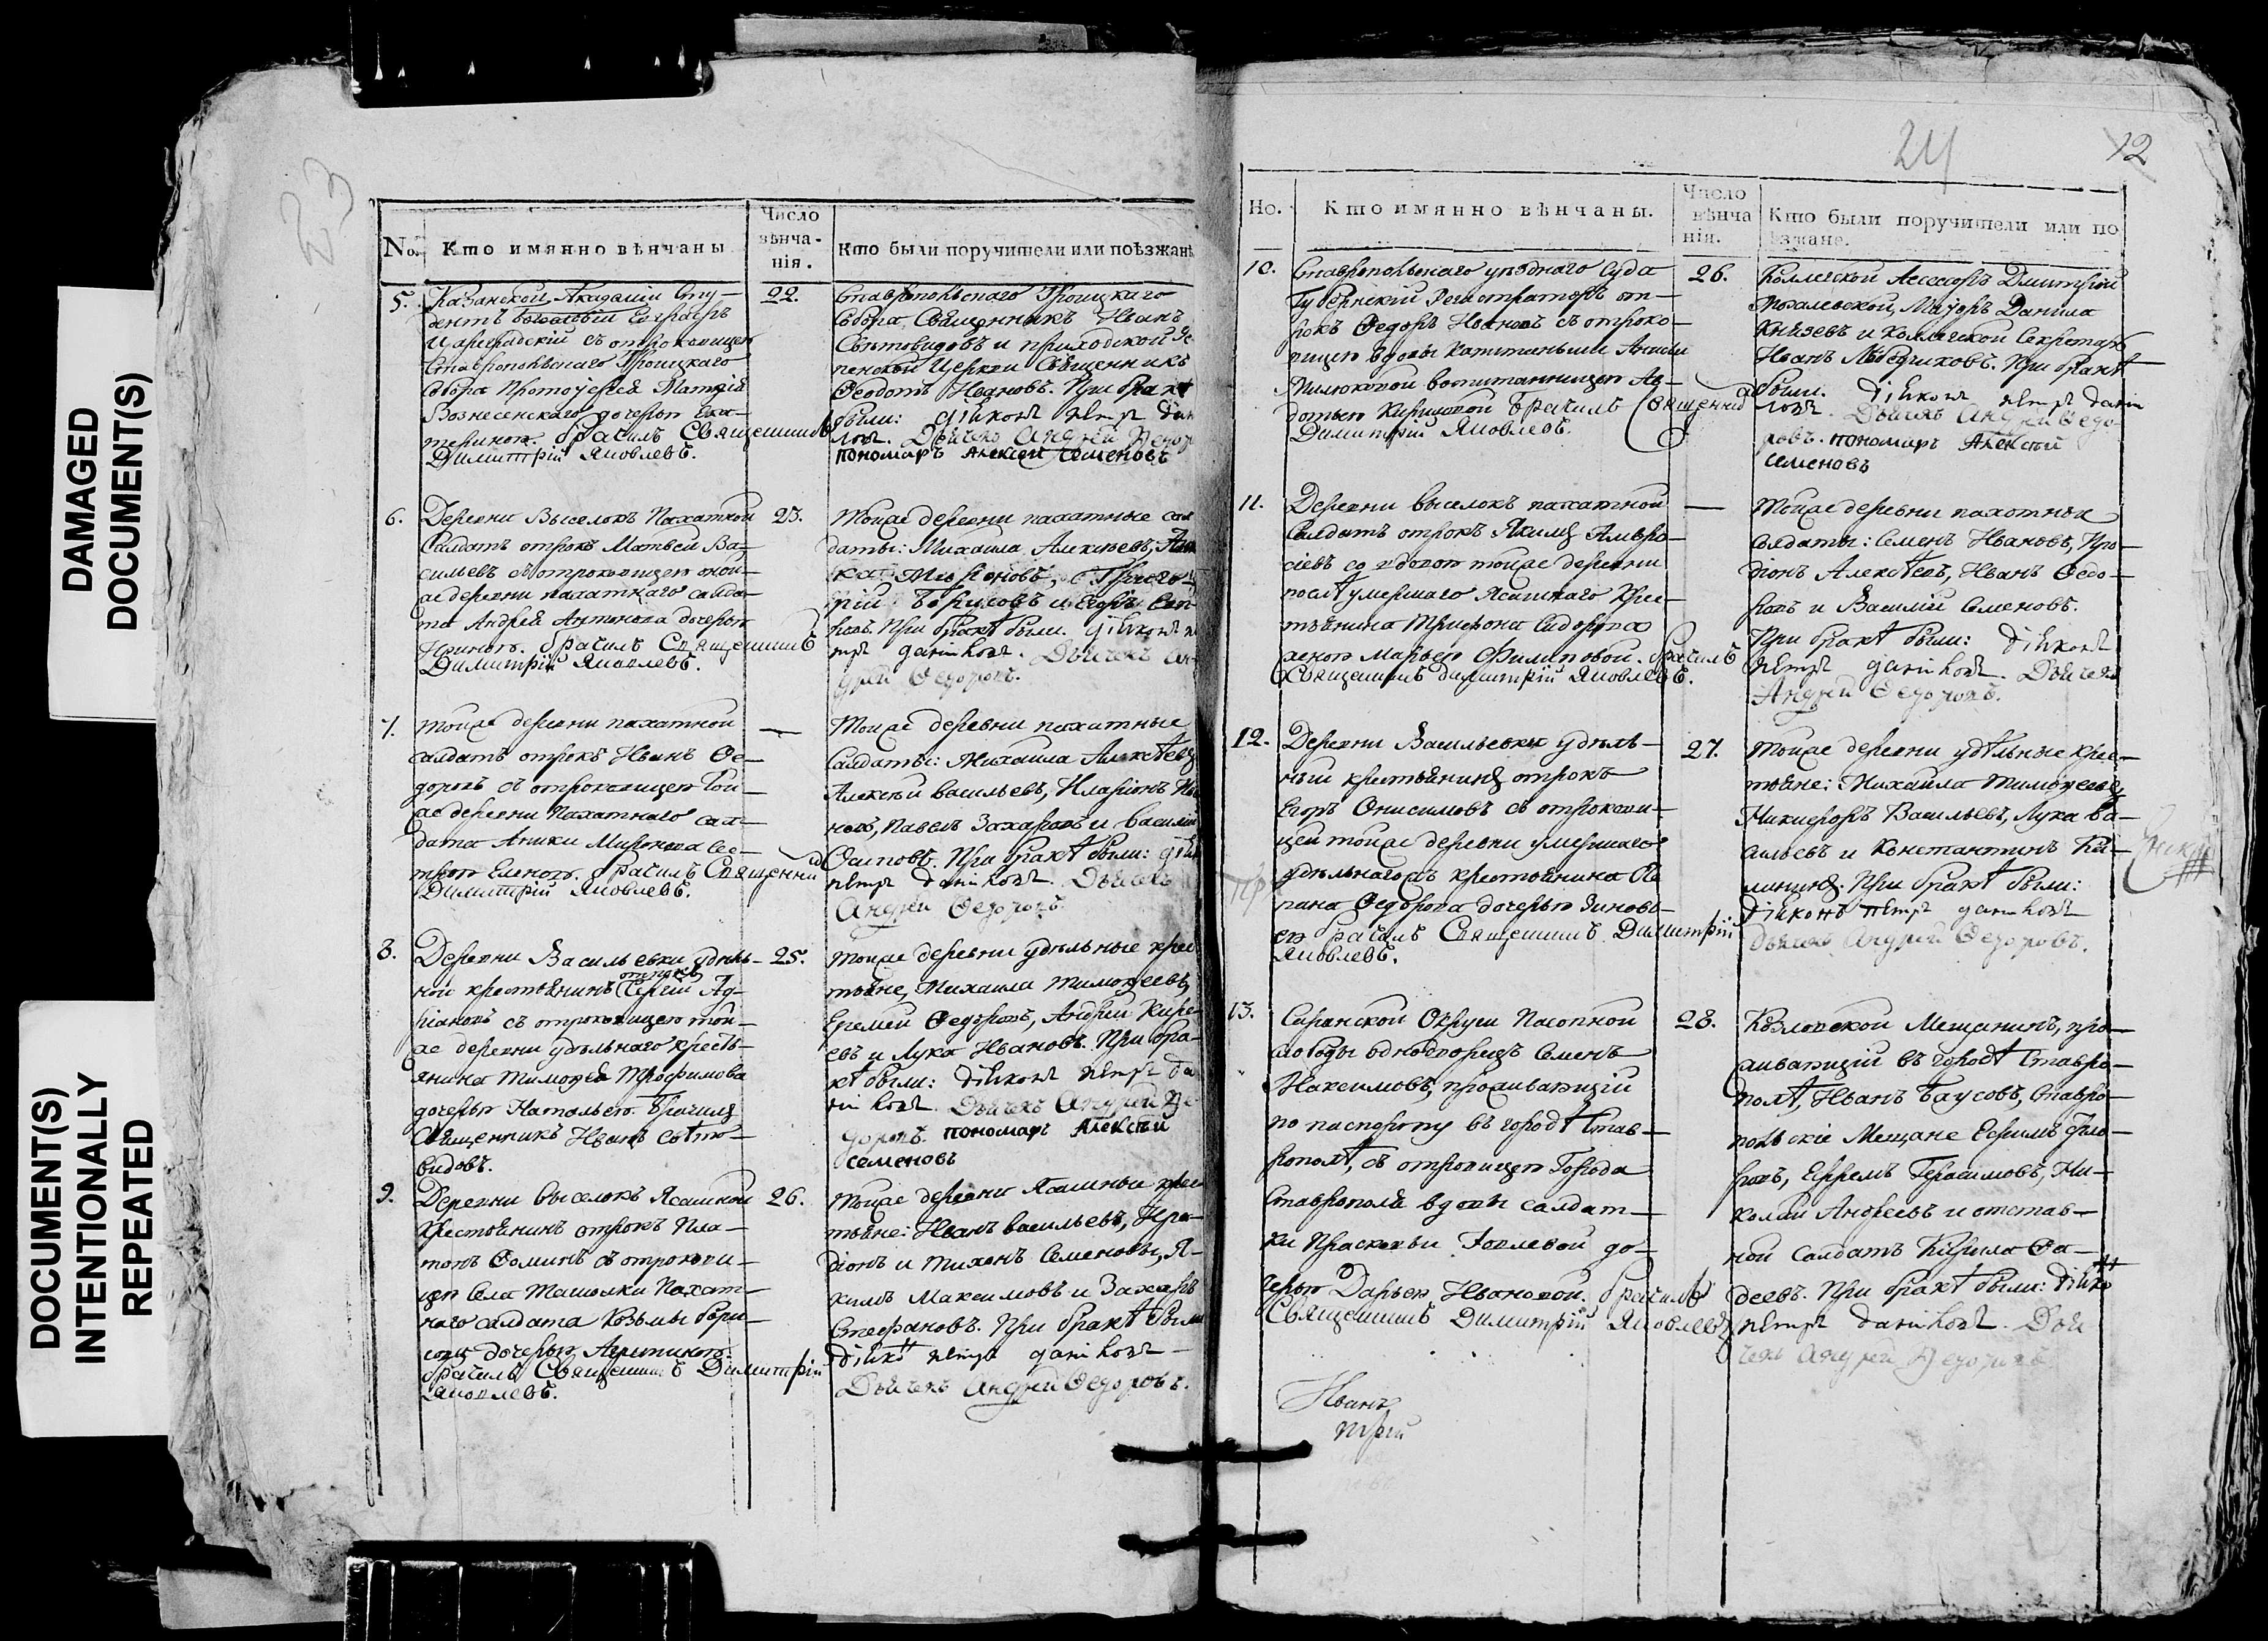 DAMAGED
DOCUMENT(S)
DOCUMENT(S)
INTENTIONALLY
REPEATED
23
No.
Кто имянно вѣнчаны
Число
вѣнча-
нія.
Кто были поручители или поѣзжанѣ
5.
Казанской Академіи Сту-
дентъ богословіи
Цареградскій съ отроковицею
Ставропольскаго Троицкаго
Собора Протоіерея Матѳія
Вознесенскаго дочерью Ека-
териною. Брачилъ Священникъ
Димитрій Яковлевъ.
22.
Ставропольскаго Троицкаго
Собора Священникъ Иванъ
Свѣтовидовъ и приходской
пенской Церкви Священникъ
Ѳеодотъ Ивановъ. При бракѣ
были: діяконъ петръ дани
ловъ. Дьячекъ Андрей Ѳедор
пономарь Алексей Семеновъ
6.
Деревни Выселокъ Пахатной
Салдатъ отрокъ Матвей Ва-
сильевъ съ отроковицею оной-
же деревни пахатнаго салда-
та Андрея Антонова дочерью
Ириною. Брачилъ Священникъ
Димитрій Яковлевъ.
23.
Тойже деревни пахатные сал
даты: Михаила Алексѣевъ,
Мироновъ, Григо-
рій Борисовъ и Егоръ
ровъ. При бракѣ были. діяконъ пе
тръ даниловъ. Дьячекъ Ан-
дрей Ѳедоровъ.
7.
Тойже деревни пахатной
салдатъ отрокъ Иванъ Ѳе-
доровъ съ отроковицею той-
же деревни Пахатнаго сал-
дата Аники Миронова сес-
трою Еленою. Брачилъ Священникъ
Димитрій Яковлевъ.
—
Тойже деревни пахатные
Салдаты: Михаила Алексѣевъ
Алексѣй Васильевъ, Иларіонъ Ива
новъ, Павелъ Захаровъ и Василій
Осиповъ. При бракѣ были: діяк
петръ даниловъ. Дьячекъ
Андрей Ѳедоровъ.
8.
Деревни Васильевки удѣль-
ной крестьянинъ отрокъ Сергій Ад-
ріановъ съ отроковицею той-
же деревни удѣльнаго кресть-
янина Тимоѳея Трофимова
дочерью Натальею. Брачилъ
Священникъ Иванъ Свѣто-
видовъ.
25.
Тойже деревни удѣльные крес
тьяне, Михаила Тимоѳеевъ,
Еремей Ѳедоровъ, Андрей Кире-
евъ и Лука Ивановъ. При бра-
кѣ были: діяконъ петръ да
ниловъ. Дьячекъ Андрей Ѳе
доровъ. пономарь Алексѣй
семеновъ
9.
Деревни Выселокъ Ясашной
Крестьянинъ отрокъ Пла-
тонъ Ѳоминъ съ отрокови-
цею Села Ташолки Пахат-
наго салдата Козьмы Бори-
сова дочерью
Брачилъ Священникъ Димитрій
Яковлевъ.
26.
Тойже деревни Ясашные крес
тьяне: Иванъ Васильевъ, Иро-
діонъ и Тихонъ Семеновы, Я-
кимъ Максимовъ и Захаръ
Стефановъ. При бракѣ были
діяконъ петръ даниловъ
Дьячекъ Андрей Ѳедоровъ.
24
12
Но.
Кто имянно вѣнчаны.
Число
вѣнча
нія.
Кто были поручители или по
ѣзжане.
10.
Ставропольскаго уѣзднаго Суда
Губернскій Регистраторъ от-
рокъ Ѳедоръ Ивановъ съ отроко-
вицею вдовы Капитанши Анисьи
Милюковой воспитанницею Ав-
дотьею Кириловой Брачилъ Священникъ
Димитрій Яковлевъ.
26.
Колежской Ассесоръ Дмитрій
Маіоръ Данила
Князевъ и Колежской Секретарь
Иванъ Лебедчиковъ. При бракѣ
были. діяконъ петръ дани
ловъ. Дьячекъ Андрей Ѳедо-
ровъ. пономарь Алексѣй
семеновъ
11.
Деревни Выселокъ пахатной
Салдатъ отрокъ Якимъ Амвро-
сіевъ со вдовою тойже деревни
послѣ умершаго Ясашнаго Крес-
тьянина Трифона Сидорова
женою Марьею Филиповой. Брачилъ
Священникъ Димитрій Яковлевъ.
—
Тойже деревни пахотные
Солдаты: Семенъ Ивановъ, Иро-
діонъ Алексѣевъ, Иванъ Ѳедо-
ровъ и Василій Семеновъ.
При бракѣ были: діяконъ
петръ даниловъ. Дьячекъ
Андрей Ѳедоровъ.
12.
Деревни Васильевки удѣль-
ный крестьянинъ отрокъ
Егоръ Онисимовъ съ отрокови-
цею тойже деревни умершаго
удѣльнагожъ крестьянина
Ѳедорова дочерью Зиновь-
ею Брачилъ Священникъ Димитрій
Яковлевъ.
27.
Тойже деревни удѣльные крес-
тьяне: Михайла Тимоѳеевъ
Никифоръ Васильевъ, Лука Ва-
сильевъ и Константинъ Ка-
лининъ. При бракѣ были:
діяконъ петръ даниловъ
дьячекъ Андрей Ѳедоровъ.
13.
Саранской Округи Пасопной
слободы однодворецъ Семенъ
Максимовъ, проживающій
по паспорту въ городѣ Став-
рополѣ, съ отроковицею Города
Ставрополя вдовы салдат-
ки Прасковьи дo-
черью Дарьею Ивановой. Брачилъ
Священникъ Димитрій Яковлевъ
28.
Козловской Мещанинъ, про-
живающій въ городѣ Ставро-
полѣ, Иванъ Баусовъ, Ставро-
польскіе Мещане Ефимъ
ровъ, Ефремъ Герасимовъ, Ни-
колай Андреевъ и отстав-
ной Салдатъ Кирила Ѳа-
деевъ. При бракѣ были: діяко
петръ даниловъ. Дья
чекъ Андрей Ѳедоровъ
Иванъ
трій